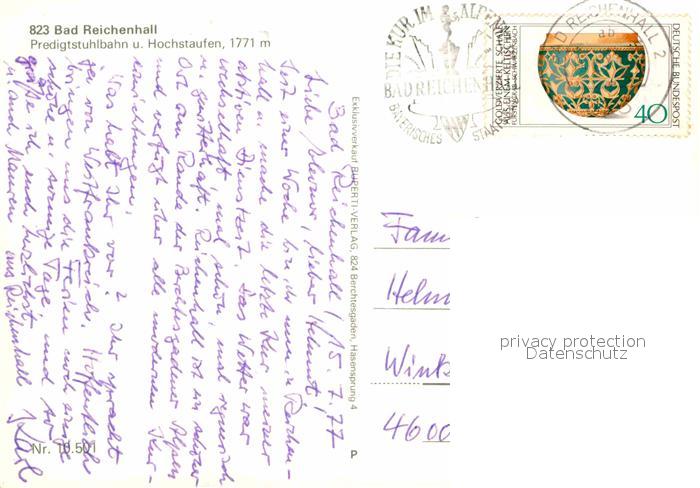 823 Bad Reichenhall
Predigtstuhlbahn u. Hochstaufen, 1771 m
DIE KUR IM ALPEN
BAD REICHENHALL
BAYERISCHES STAATSBAD
BAD REICHENHALL 2
ab
GOLDVERZIERTE SCHALE
AUS EINEM KELTISCHEN
DEUTSCHE BUNDESPOST
40
Bad Reichenhall, 15.7.77
Liebe lieber Helmut,
seit einer Woche bin ich nun in Reichen-
hall u. mache die letzte Kur meiner
Dienstzeit. Das Wetter war
wechselhaft, mal schön, mal regnerisch
u. gewitterhaft. Reichenhall ist ein schöner
Ort am Rande der Berchtesgadener Alpen
und verfügt über alle modernen Kur-
einrichtungen.
Was habt Ihr vor? Ihr spracht
ja von Westfrankreich. Hoffentlich
bringen uns die Ferien noch einige
schöne u. sonnige Tage und so
grüße ich euch herzlichst
aus Reichenhall Karl
Exklusivverkauf RUPERTI-VERLAG, 824 Berchtesgaden, Hasensprung 4
Nr. 10.501
P
Fam
Helm
Wink
4600
privacy protection
Datenschutz